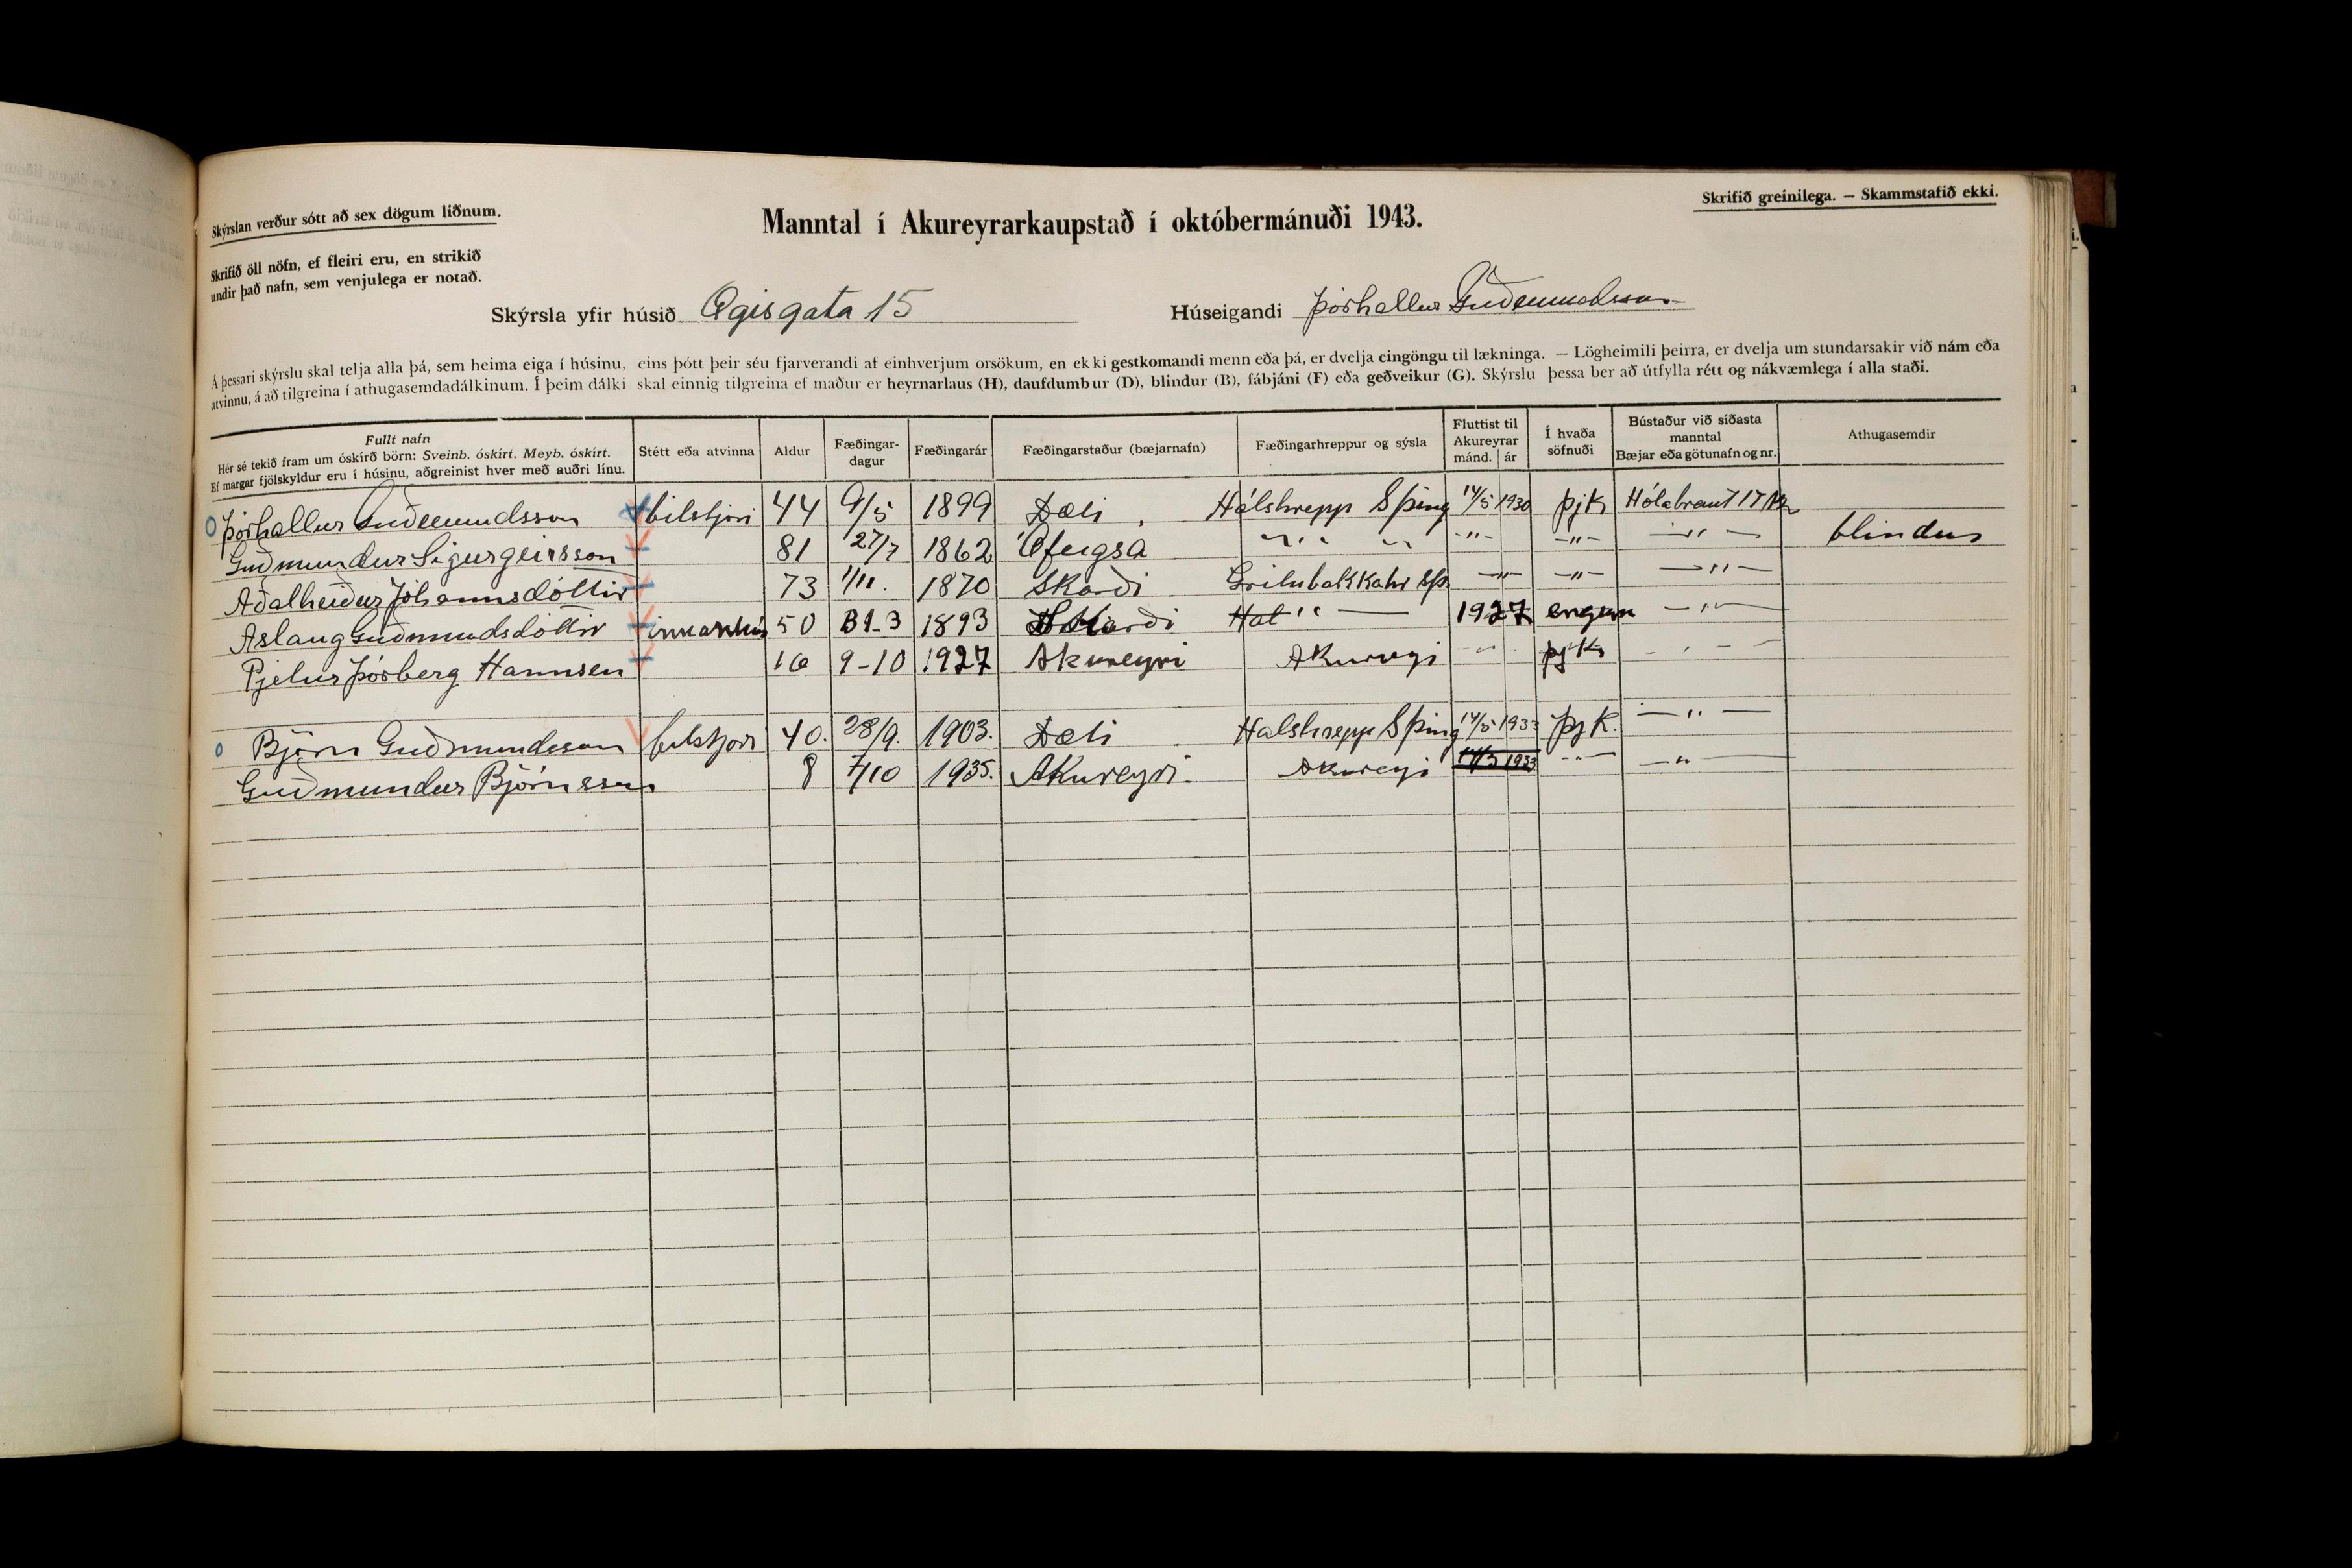 Skýrslan verður sótt að sex dögum liðnum.
Skrifið öll nöfn, ef fleiri eru, en strikið
undir það nafn, sem venjulega er notað.
Manntal í Akureyrarkaupstað í októbermánuði 1943.
Skrifið greinilega. — Skammstafið ekki.
Skýrsla yfir húsið Ægisgata 15 Húseigandi Þórhallur Guðmundsson
Á þessari skýrslu skal telja alla þá, sem heima eiga í húsinu, eins þótt þeir séu fjarverandi af einhverjum orsökum, en ekki gestkomandi menn eða þá, er dvelja eingöngu til lækninga. — Lögheimili þeirra, er dvelja um stundarsakir við nám eða
atvinnu, á að tilgreina í athugasemdadálkinum. Í þeim dálki skal einnig tilgreina ef maður er heyrnarlaus (H), daufdumbur (D), blindur (B), fábjáni (F) eða geðveikur (G). Skýrslu þessa ber að útfylla rétt og nákvæmlega í alla staði.
Fullt nafn
Hér sé tekið fram um óskírð börn: Sveinb. óskírt. Meyb. óskírt.
Ef margar fjölskyldur eru í húsinu, aðgreinist hver með auðri línu.
Stétt eða atvinna
Aldur
Fæðingar-
dagur
Fæðingarár
Fæðingarstaður (bæjarnafn)
Fæðingarhreppur og sýsla
Fluttist til
Akureyrar
mánd. ár
Í hvaða
söfnuði
Bústaður við síðasta
manntal
Bæjar eða götunafn og nr.
Athugasemdir
Þórhallur Guðmundsson bílstjóri 44 9/5 1899 Dæli Hálshrepp S þing 14/5 1930 þjk Hólabraut 17
Guðmundur Sigurgeirsson 81 27/7 1862 " " -"- -"- -"- blindur
Aðalheiður Jóhannsdóttir 73 1/11. 1870 Skarði -"- -"- -"-
Aslaug Guðmundsdóttir 50 31-3 1893 1927 engum -"-
Pjetur Þórberg Hannsen 16 9-10 1927 Akureyri Akureyri " þjk - " -
Björn Guðmundsson bílstjóri 40. 28/9. 1903. Dæli Halshrepp S þing 14/5 1933 þjk. -"-
Guðmundur Björnsson 8 7/10 1935. Akureyri Akureyri 14/5 1933 -"- -"-